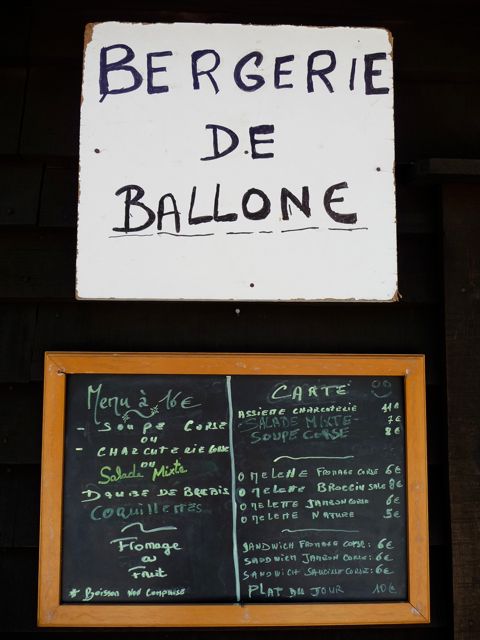 BERGERIE
DE
BALLONE
Menu à 16€
- SOUPE CORSE
OU
- CHARCUTERIE CORSE
OU
Salade Mixte
DAUBE DE BREBIS
COQUILLETTES
Fromage
OU
Fruit
* Boisson non comprise
CARTE
ASSIETTE CHARCUTERIE 11€
SALADE MIXTE 7€
SOUPE CORSE 8€
OMELETTE FROMAGE CORSE 6€
OMELETTE BROCCIU SALÉ 8€
OMELETTE JAMBON CORSE 6€
OMELETTE NATURE 5€
SANDWICH FROMAGE CORSE: 6€
SANDWICH JAMBON CORSE: 6€
SANDWICH SAUCISSE CORSE: 6€
PLAT DU JOUR 10€